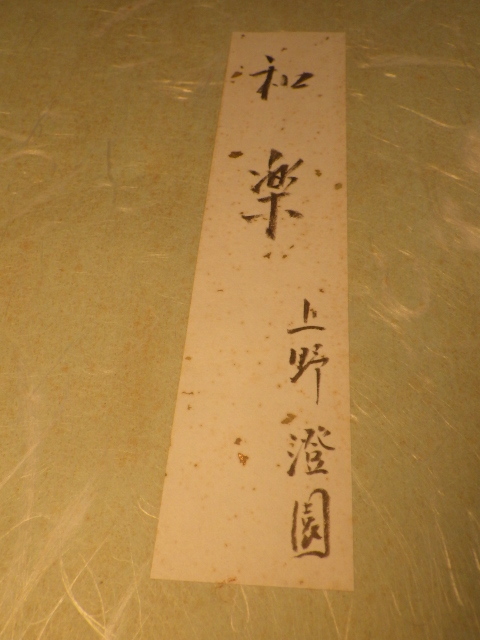 和楽
上野澄園